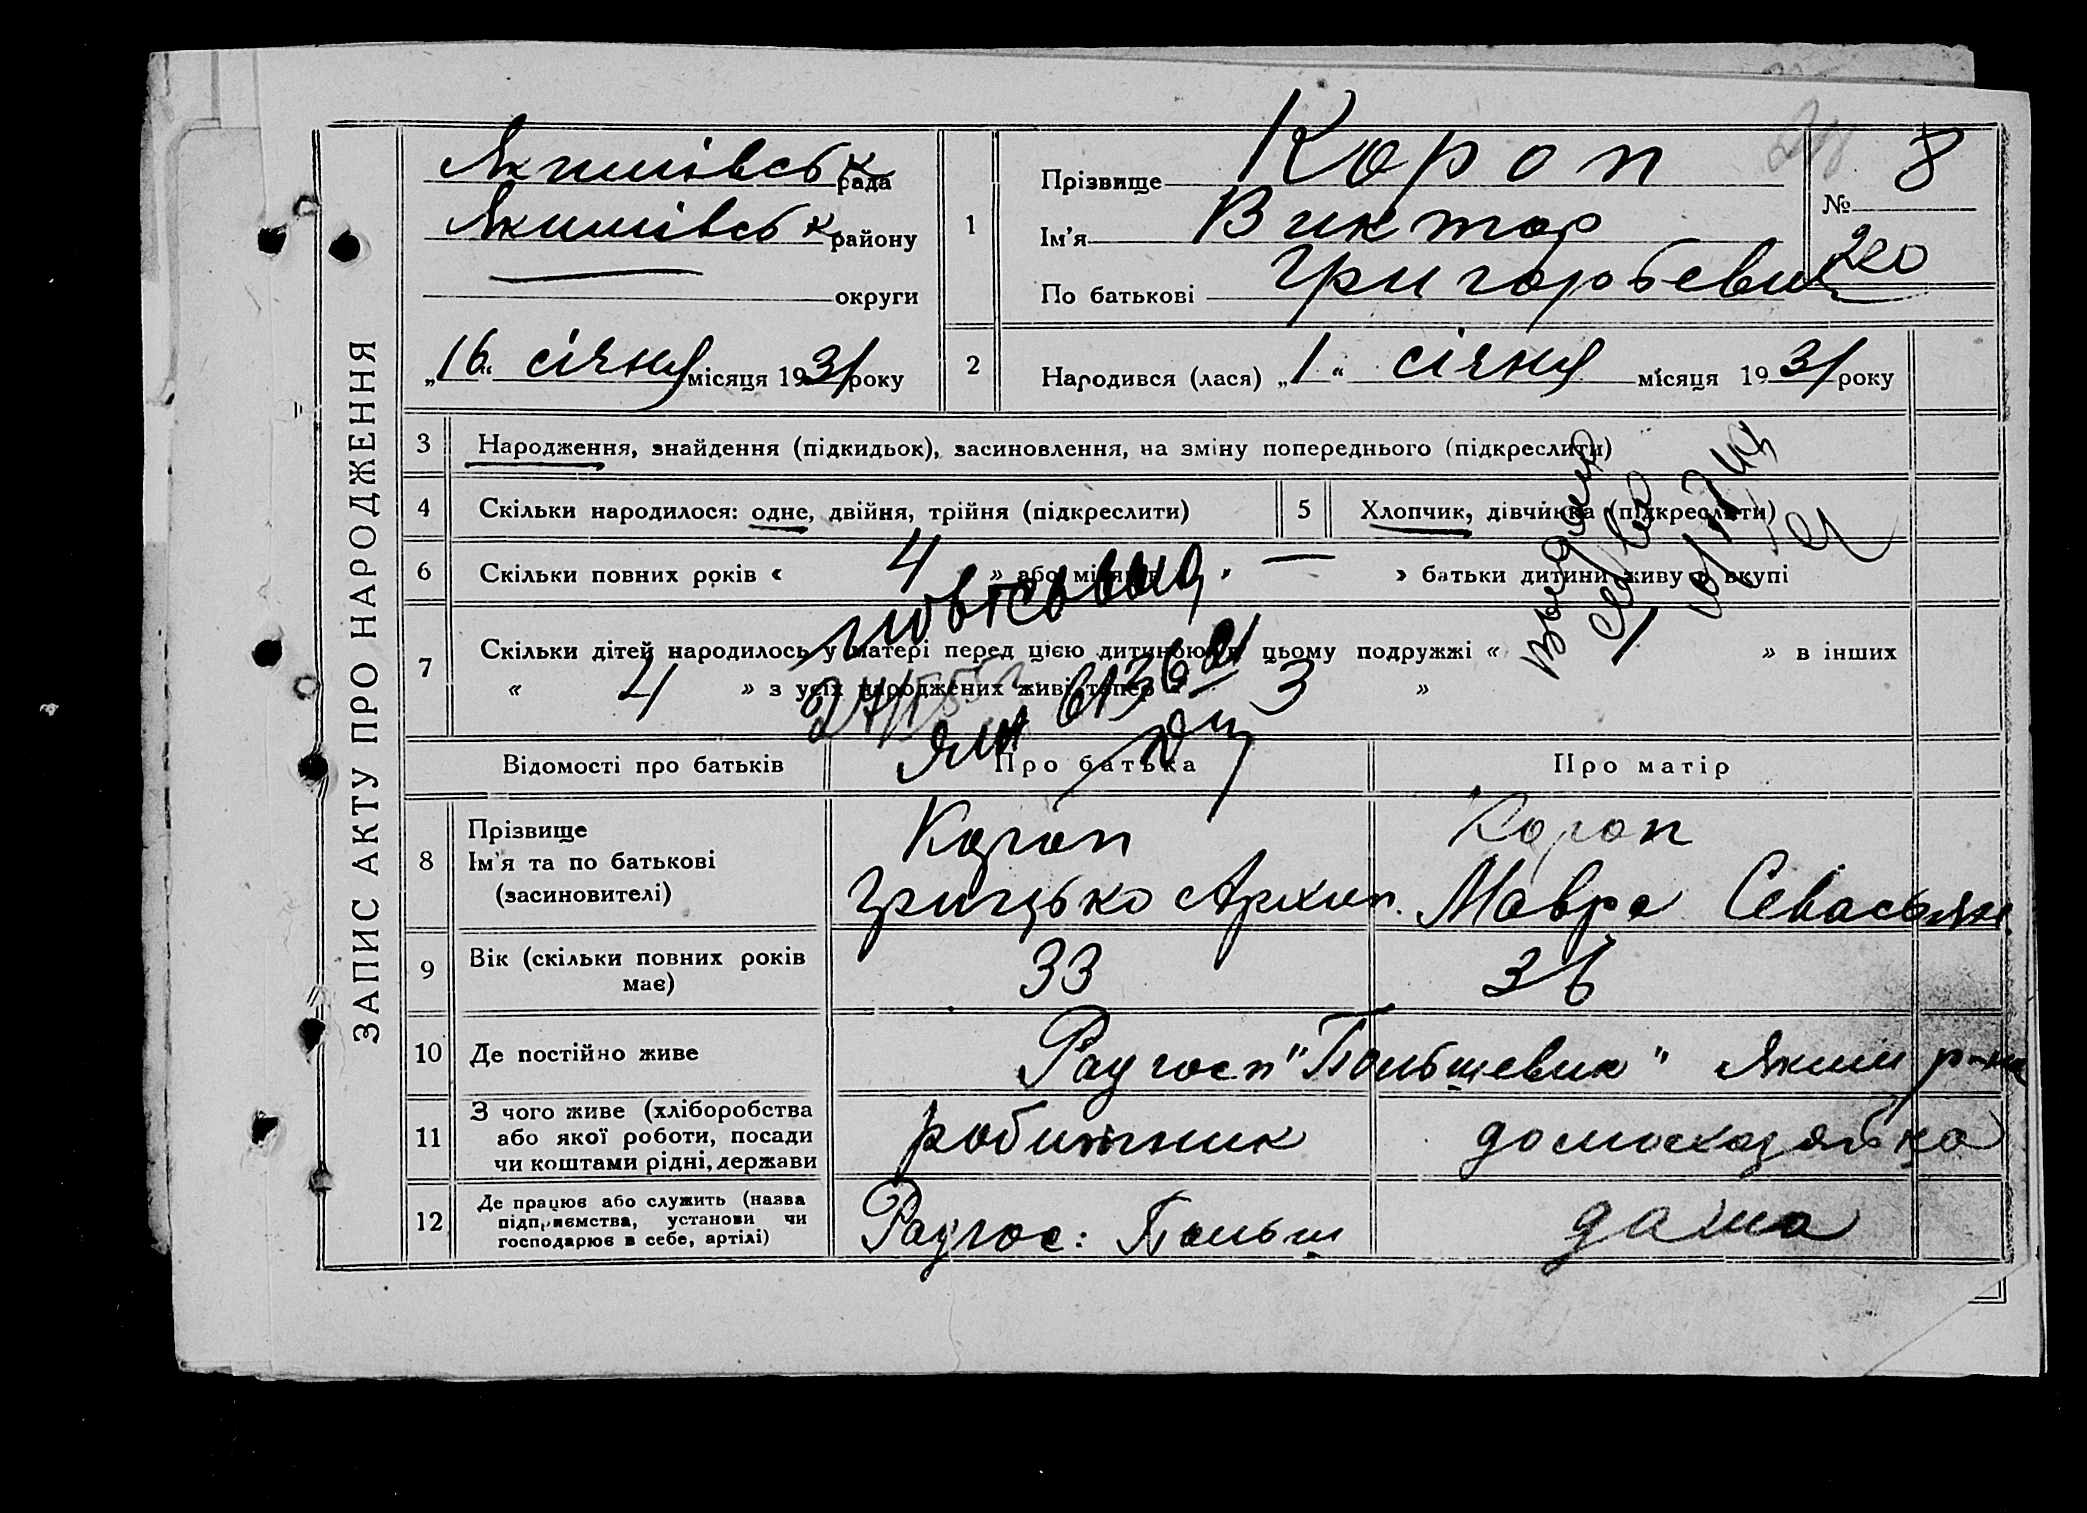 ЗАПИС АКТУ ПРО НАРОДЖЕННЯ
Якимівськ рада
Якимівськ району
округи
„16“ січня місяця 1931 року
1
Прізвище Короп
Ім'я Виктор
По батькові Григорьевич
№ 8
220
2
Народився (лася) „1“ січня місяця 1931 року
3 Народження, знайдення (підкидьок), засиновлення, на зміну попереднього (підкреслити)
4 Скільки народилося: одне, двійня, трійня (підкреслити)
5 Хлопчик, дівчинка (підкреслити)
6 Скільки повних років « 4 » або місяців « — » батьки дитини живуть вкупі
7 Скільки дітей народилось у матері перед цією дитиною в цьому подружжі « 1 » в інших
« 4 » з усіх народжених живі тепер « 3 »
повторно
Відомості про батьків
Про батька
Про матір
8 Прізвище
Ім'я та по батькові
(засиновителі)
Короп
Грицько Архип.
Короп
Мавра Севастьян.
9 Вік (скільки повних років
має)
33
36
10 Де постійно живе
Радгосп "Большевик" Яким р-на
11 З чого живе (хліборобства
або якої роботи, посади
чи коштами рідні, держави
робитник
домохозяйка
12 Де працює або служить (назва
підприємства, установи чи
господарює в себе, артілі)
Радгос: Больш
дома